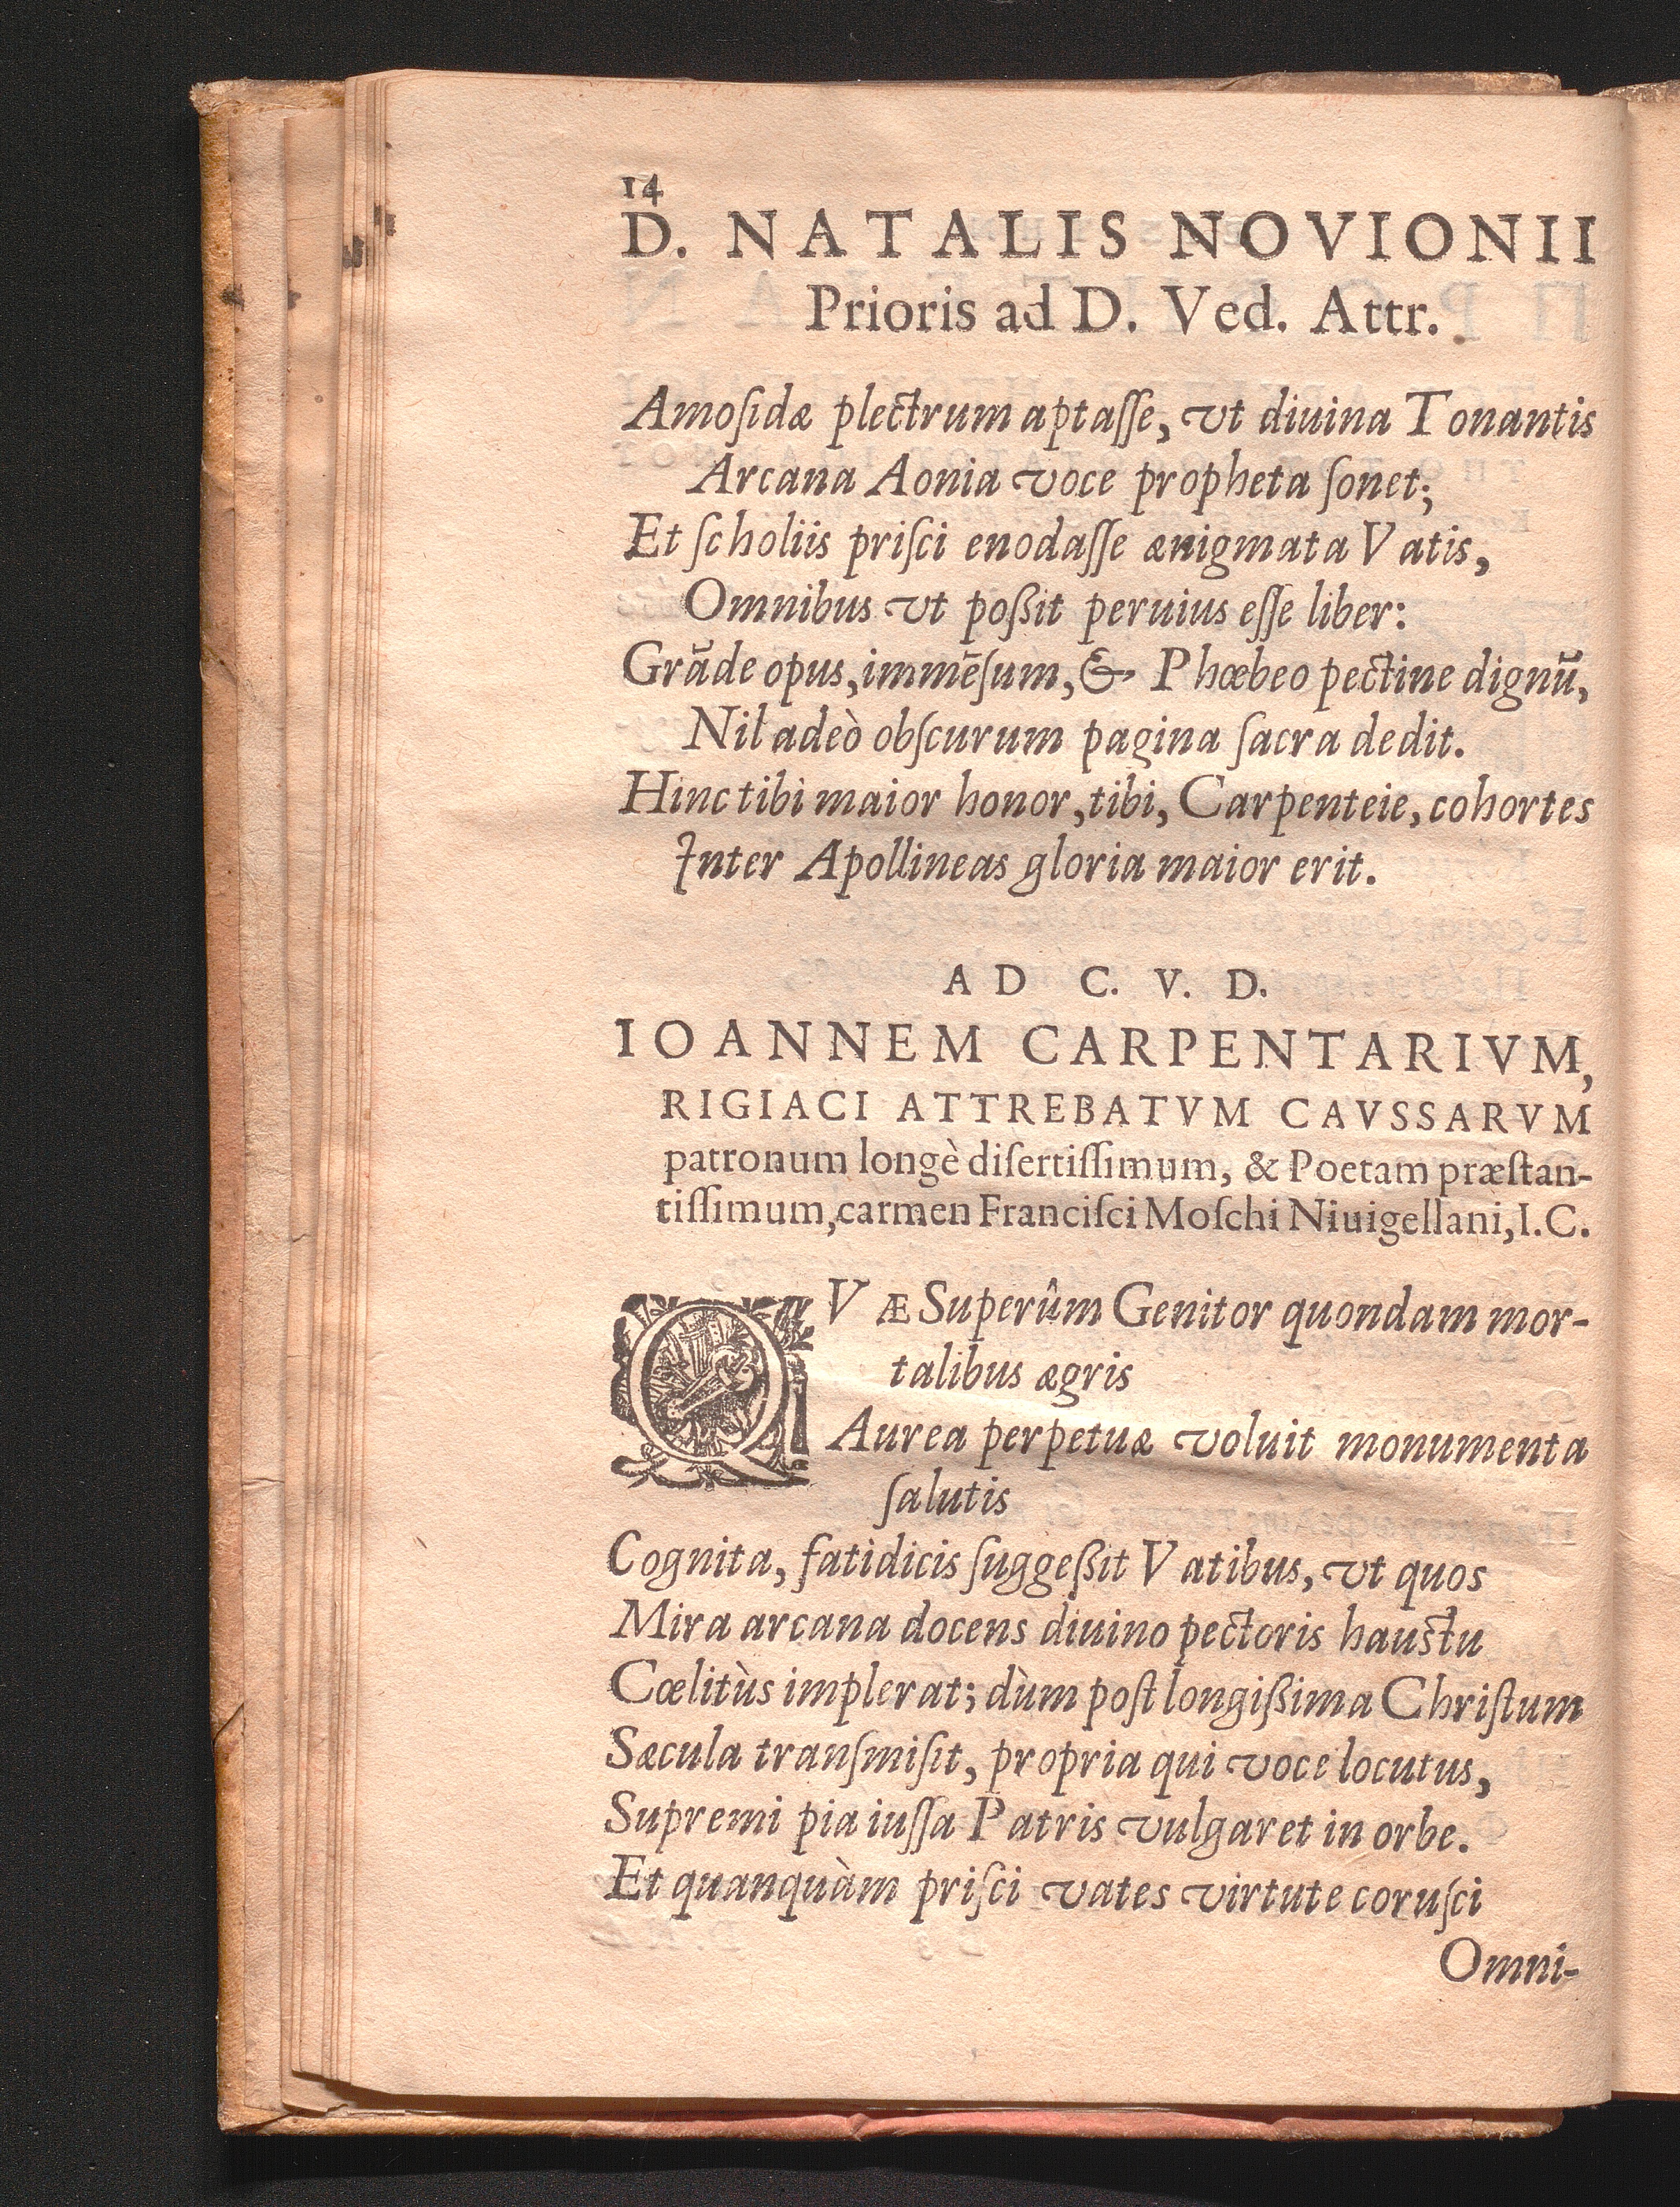 14
D. NATALIS NOVIONII
Prioris ad D. Ved. Attr.
Amoſidæ plectrum aptaſſe, vt diuina Tonantis
Arcana Aonia voce propheta ſonet;
Et ſcholiis priſci enodaſſe ænigmata Vatis,
Omnibus vt poßit peruius eſſe liber:
Grāde opus, immēſum, & Phœbeo pectine dignū,
Nil adeò obſcurum pagina ſacra dedit.
Hinc tibi maior honor, tibi, Carpenteie, cohortes
Inter Apollineas gloria maior erit.
AD C. V. D.
IOANNEM CARPENTARIVM,
RIGIACI ATTREBATVM CAVSSARVM
patronum longè diſertiſſimum, & Poetam præſtan-
tiſſimum, carmen Franciſci Moſchi Niuigellani, I.C.
QVÆ Superûm Genitor quondam mor-
talibus ægris
Aurea perpetuæ voluit monumenta
ſalutis
Cognita, fatidicis ſuggeßit Vatibus, vt quos
Mira arcana docens diuino pectoris hauſtu
Cœlitùs implerat; dùm poſt longißima Chriſtum
Sæcula tranſmiſit, propria qui voce locutus,
Supremi pia iuſſa Patris vulgaret in orbe.
Et quanquàm priſci vates virtute coruſci
Omni-